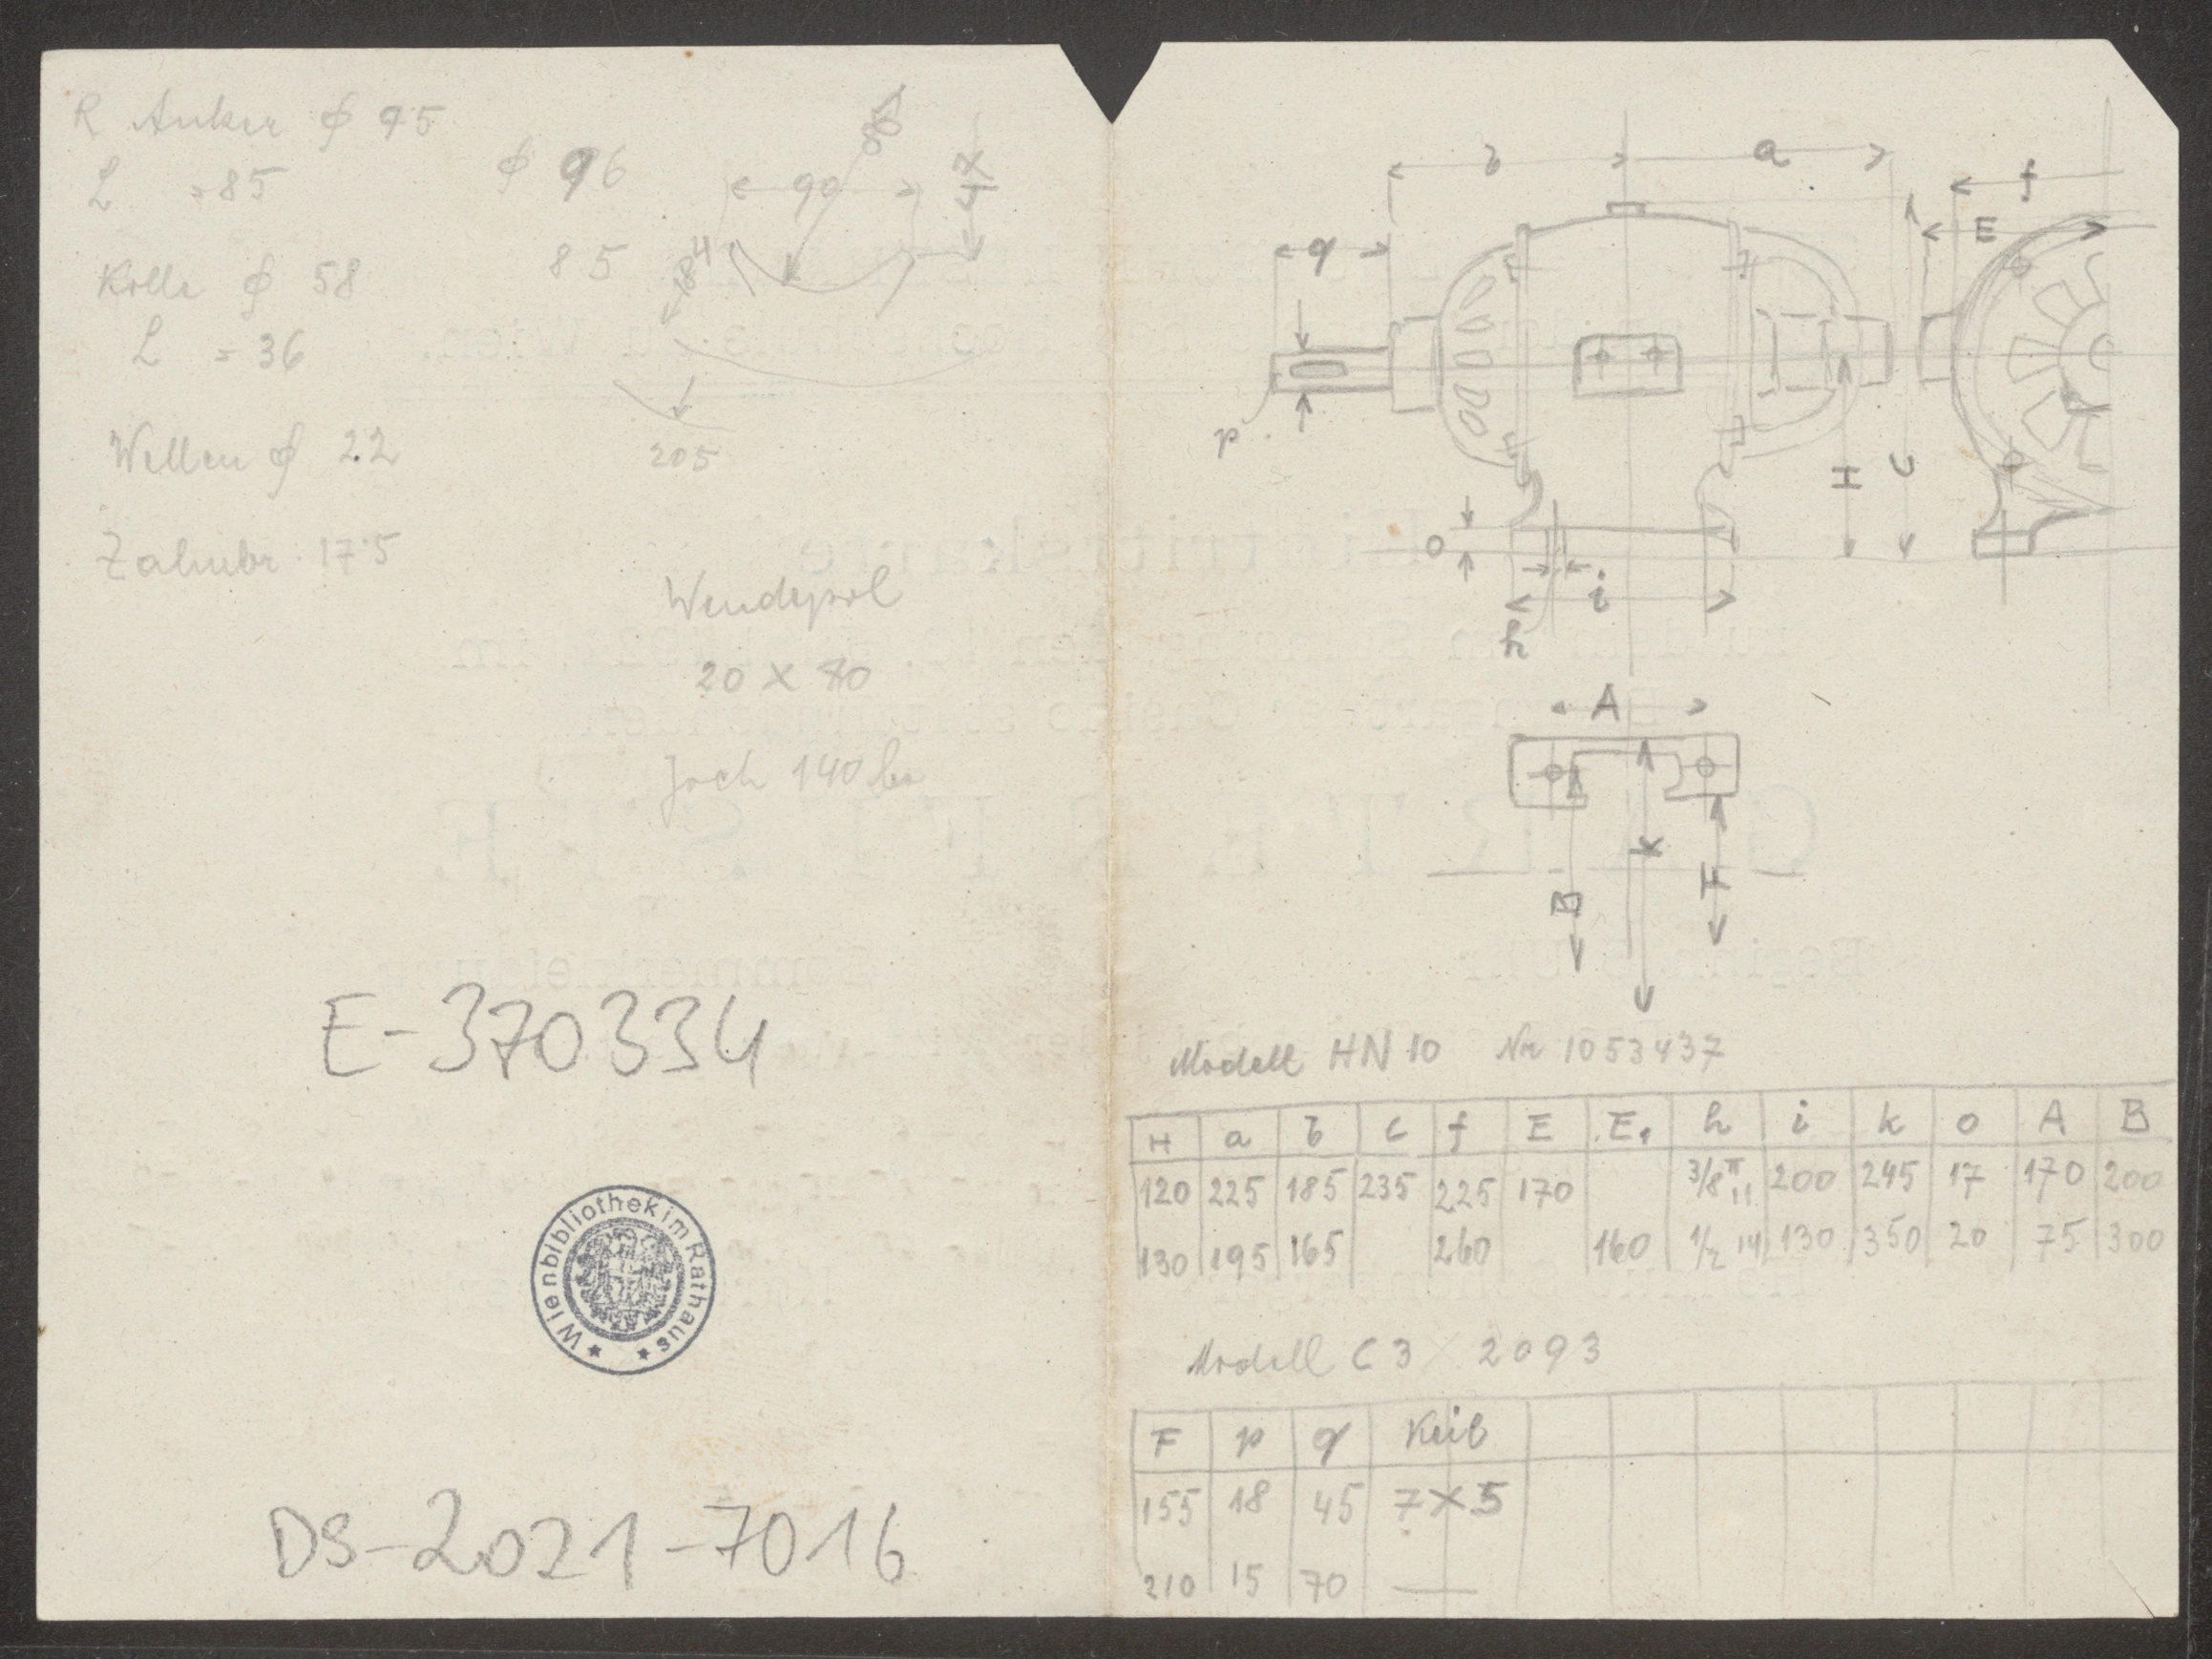 R Anker ∅ 95
L = 85
∅ 96
85
Kolle ∅ 58
L = 36
Wellen ∅ 22
Zahnbr. 17·5
90
84
205
Wendepol
20 X 80
Joch 140 br
E-370334
Wienbibliothek im Rathaus
DS-2021-7016
b a f
q E
p
H C
o
i
h
A
B k F
Modell HN 10 Nr 1053437
H a b c f E E₁ h i k o A B
120 225 185 235 225 170 3/8" 11 200 245 17 170 200
130 195 165 260 160 1/2 14 130 350 20 75 300
Modell C 3 2093
F p q Keil
155 18 45 7 X 5
210 15 70 —